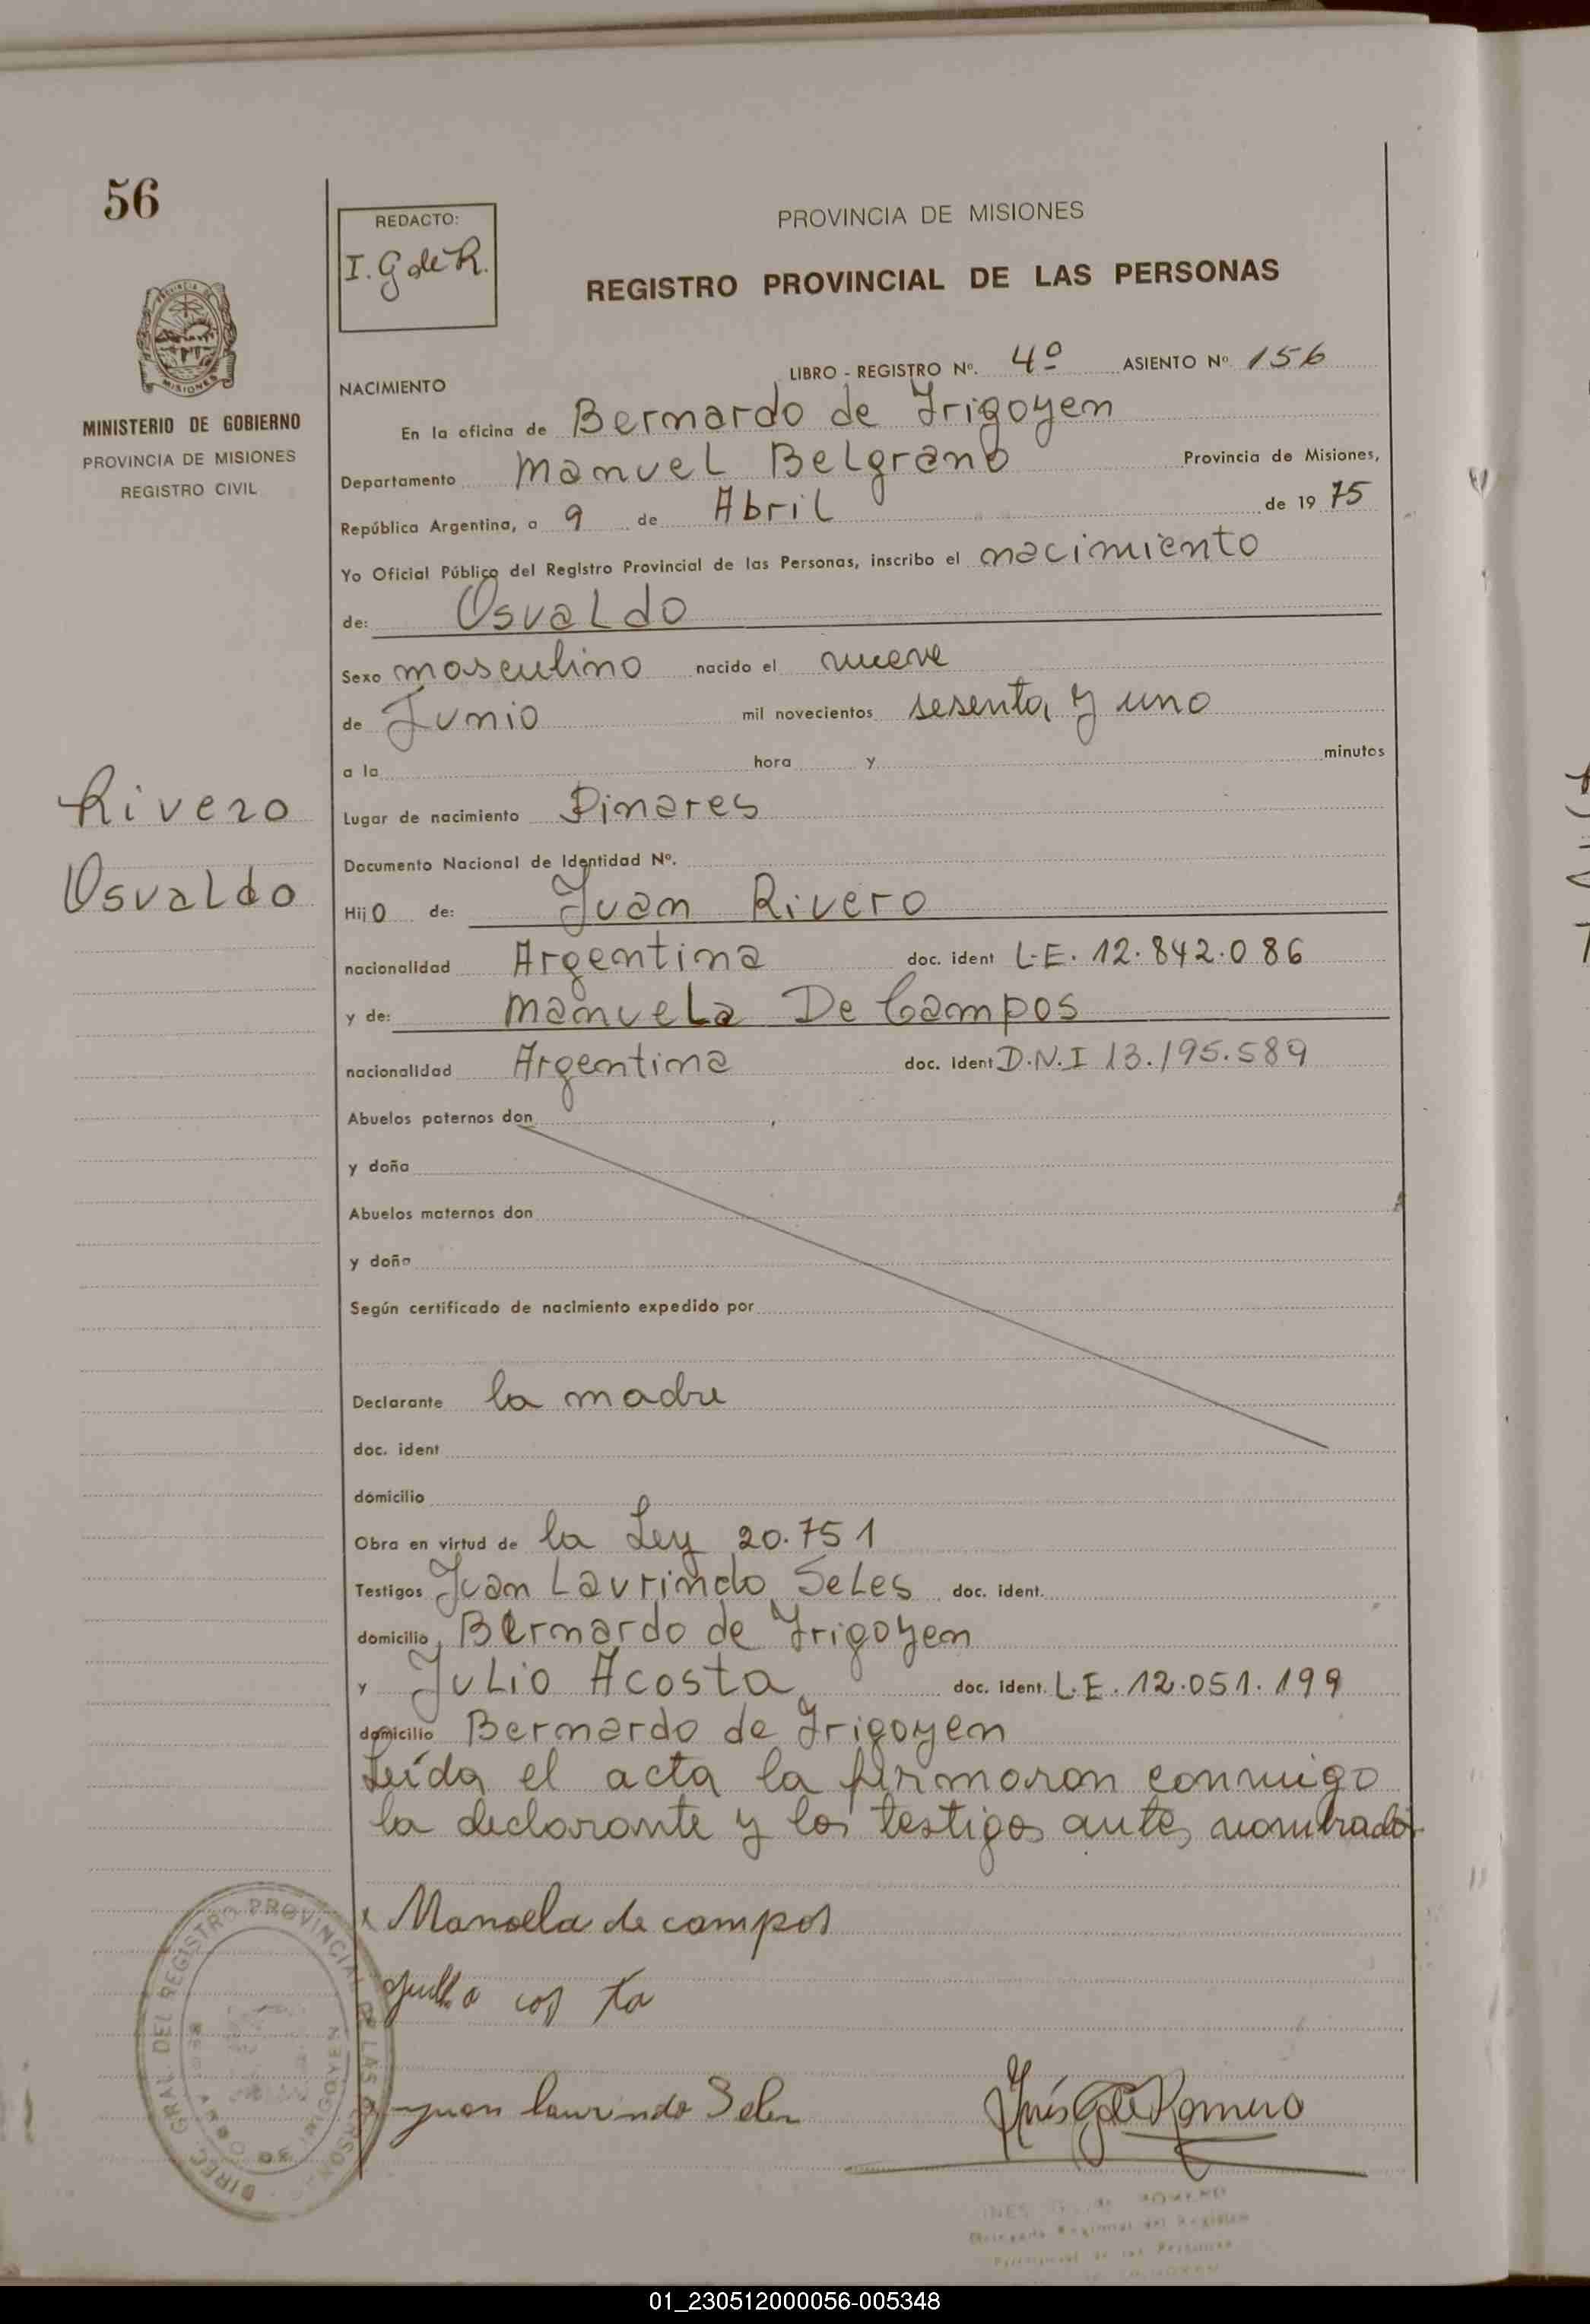 56
REDACTO:
I. G de R.
PROVINCIA DE MISIONES
REGISTRO PROVINCIAL DE LAS PERSONAS
MISIONES
MINISTERIO DE GOBIERNO
PROVINCIA DE MISIONES
REGISTRO CIVIL
LIBRO - REGISTRO Nº. 4º ASIENTO Nº 156
NACIMIENTO
En la oficina de Bernardo de Irigoyen
Departamento Manuel Belgrano Provincia de Misiones,
República Argentina, a 9 de Abril de 19 75
Yo Oficial Público del Registro Provincial de las Personas, inscribo el nacimiento
de: Osvaldo
Sexo masculino nacido el nueve
de Junio mil novecientos sesenta y uno
a la hora y minutos
Rivero
Osvaldo
Lugar de nacimiento Pinares
Documento Nacional de Identidad Nº.
Hijo de: Juan Rivero
nacionalidad Argentina doc. ident L.E. 12.842.086
y de: Manuela De Campos
nacionalidad Argentina doc. ident D.N.I 13.195.589
Abuelos paternos don
y doña
Abuelos maternos don
y doña
Según certificado de nacimiento expedido por
Declarante la madre
doc. ident
domicilio
Obra en virtud de la Ley 20.751
Testigos Juan Laurindo Seles doc. ident.
domicilio Bernardo de Irigoyen
y Julio Acosta doc. ident. L.E. 12.051.199
domicilio Bernardo de Irigoyen
Leída el acta la firmaron conmigo
la declarante y los testigos antes nombrados
x Manoela de campos
cos ta
Juan laurindo Seles
Inés G de Romero
DIREC. GRAL. DEL REGISTRO PROVINCIAL DE LAS PERSONAS
IRIGOYEN
INES ROMERO
Delegada Regional del Registro
Provincial de las Personas
01_230512000056-005348